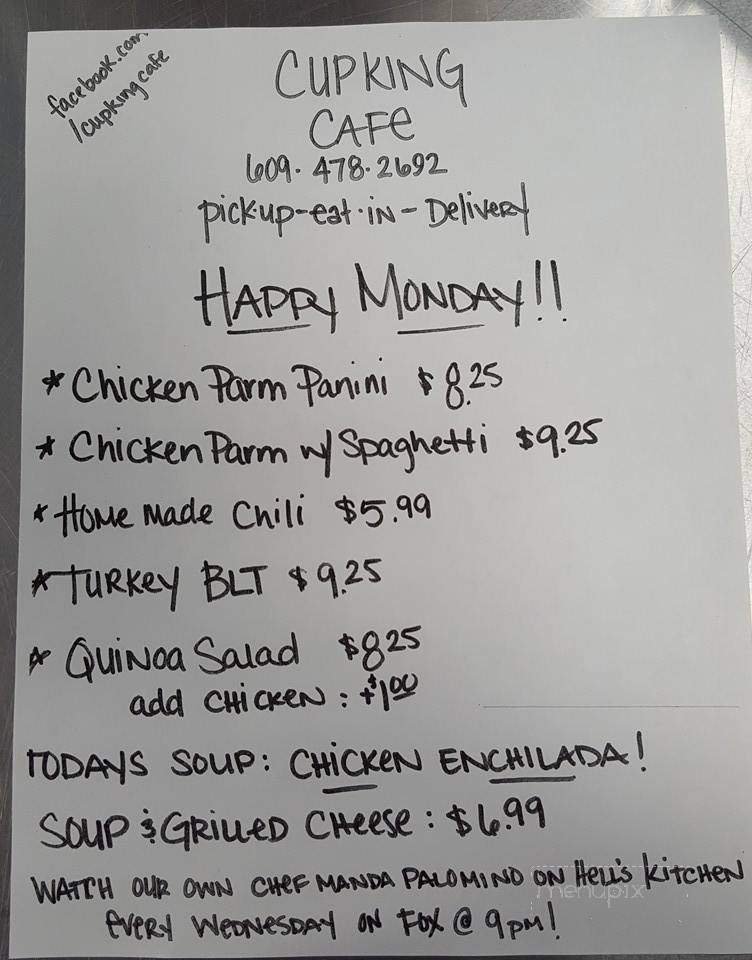 facebook.com
/cupkingcafe
CUPKING
CAFe
609-478-2692
pick-up-eat-in-Delivery
HAPPY MONDAY!!
* Chicken Parm Panini $8.25
* Chicken Parm w/ Spaghetti $9.25
* Home Made Chili $5.99
* TURKey BLT $9.25
* Quinoa Salad $8.25
add CHICKEN: +$1.00
TODAYS SOUP: CHICKeN ENCHILADA!
SOUP & GRILLED CHeeSe: $6.99
WATCH OUR OWN CHeF MANDA PALOMINO ON HeLL'S KITCHEN
eVeRY WeDNeSDAY ON FOX @ 9pm!
menupix